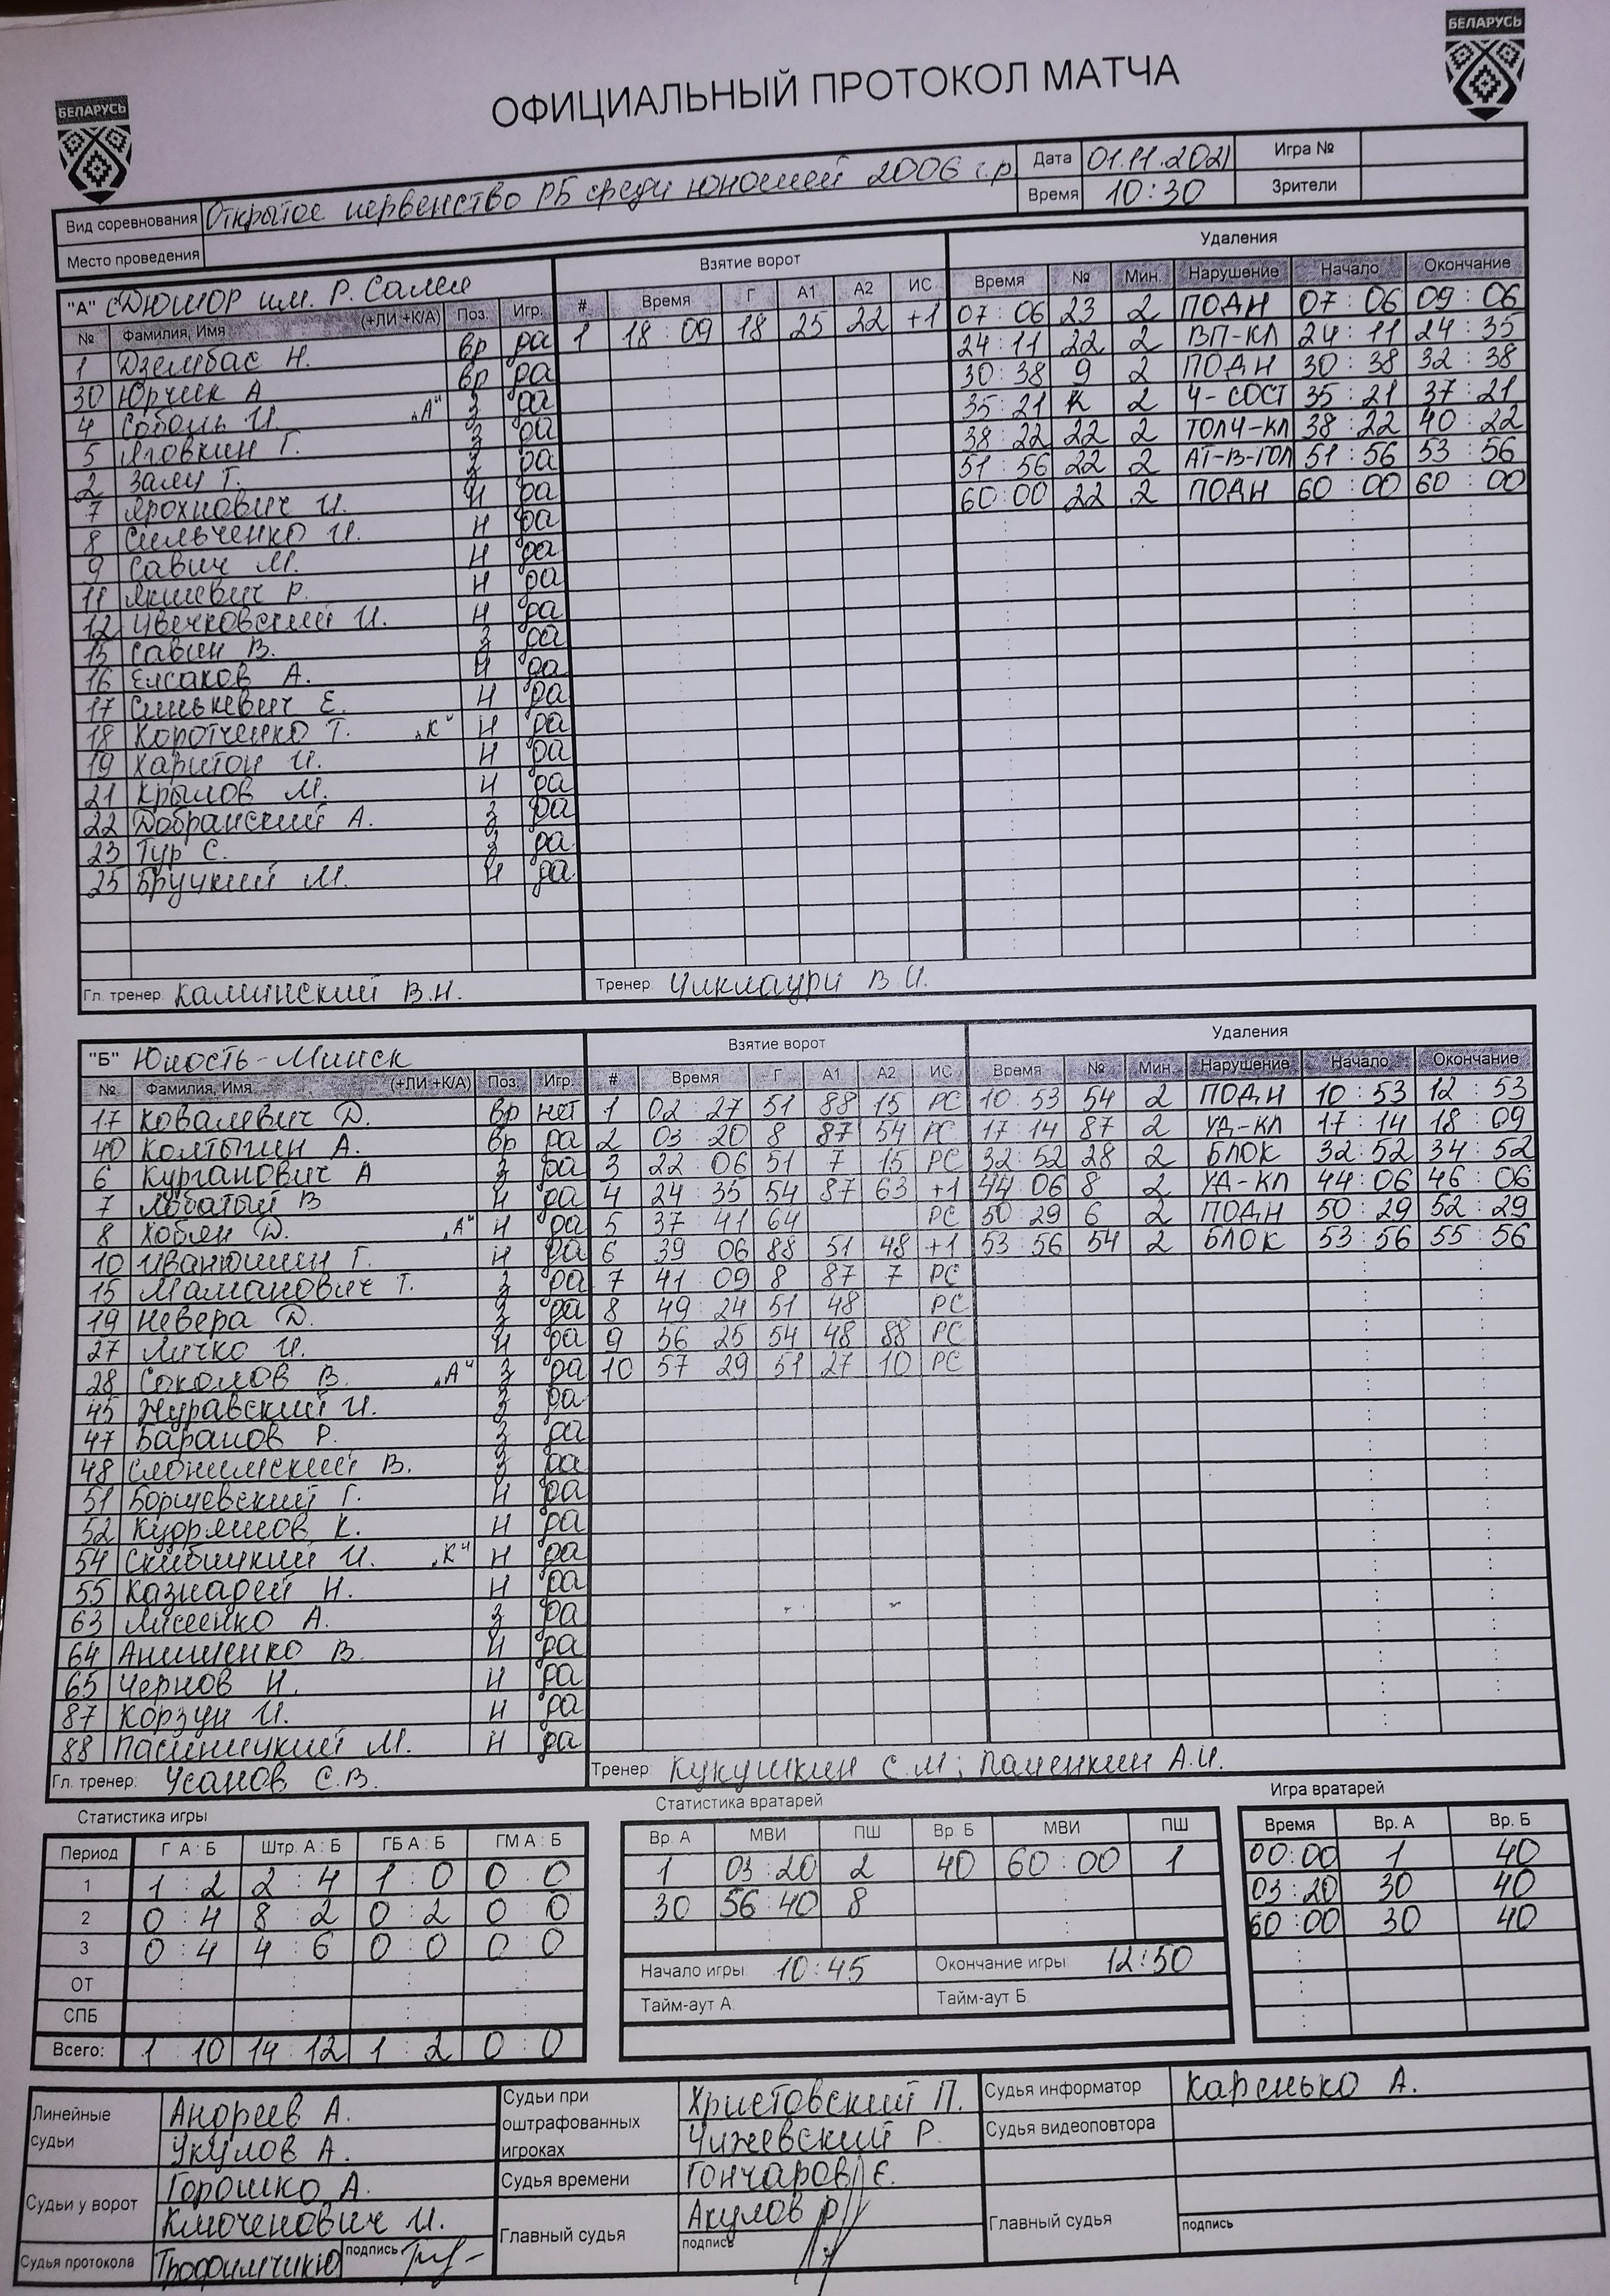 БЕЛАРУСЬ
БЕЛАРУСЬ
ОФИЦИАЛЬНЫЙ ПРОТОКОЛ МАТЧА
Вид соревнования Открытое первенство РБ среди юношей 2006 г.р Дата 01.11.2021 Игра №
Место проведения Время 10:30 Зрители
"А" СДЮШОР им. Р. Салея Взятие ворот Удаления
№ Фамилия, Имя (+ЛИ +К/А) Поз. Игр. # Время Г А1 А2 ИС Время № Мин. Нарушение Начало Окончание
1 Дзембас Н. вр да 1 18:09 18 25 22 +1 07:06 23 2 ПОДН 07:06 09:06
30 Юрчик А вр да 24:11 22 2 ВП-КЛ 24:11 24:35
4 Соболь И „А" з да 30:38 9 2 ПОДН 30:38 32:38
5 Яговкин Г. з да 35:21 К 2 Ч-СОСТ 35:21 37:21
2 Залу Т. з да 38:22 22 2 ТОЛЧ-КЛ 38:22 40:22
7 Ярохнович И. н да 51:56 22 2 АТ-В-ГОЛ 51:56 53:56
8 Сильченко И. н да 60:00 22 2 ПОДН 60:00 60:00
9 Савич М. н да
11 Якшевич Р. н да
12 Цвечковский И. н да
15 Савин В. з да
16 Елсаков А. н да
17 Синькевич Е. н да
18 Коротченко Т. „К" н да
19 Харитон И. н да
21 Крылов М. н да
22 Добранский А. з да
23 Тур С. з да
25 Бруцкий М. н да
Гл. тренер: Калинский В.Н. Тренер: Чиклаури В.И.
"Б" Юность-Минск Взятие ворот Удаления
№ Фамилия, Имя (+ЛИ +К/А) Поз. Игр. # Время Г А1 А2 ИС Время № Мин. Нарушение Начало Окончание
17 Ковалевич Д. вр нет 1 02:27 51 88 15 РС 10:53 54 2 ПОДН 10:53 12:53
40 Колтыгин А. вр да 2 03:20 8 87 54 РС 17:14 87 2 УД-КЛ 17:14 18:09
6 Курганович А з да 3 22:06 51 7 15 РС 32:52 28 2 БЛОК 32:52 34:52
7 Лобатый В н да 4 24:35 54 87 63 +1 44:06 8 2 УД-КЛ 44:06 46:06
8 Хобян Д. „А" н да 5 37:41 64 РС 50:29 6 2 ПОДН 50:29 52:29
10 Иванюшин Г. н да 6 39:06 88 51 48 +1 53:56 54 2 БЛОК 53:56 55:56
15 Маманович Т. з да 7 41:09 8 87 7 РС
19 Невера Д. з да 8 49:24 51 48 РС
27 Личко И. н да 9 56:25 54 48 88 РС
28 Соколов В. „А" з да 10 57:29 51 27 10 РС
45 Журавский И. з да
47 Баранов Р. з да
48 Слонимский В. з да
51 Борщевский Г. н да
52 Кудряшов К. н да
54 Скибицкий И. „К" н да
55 Казнадей Н. н да
63 Лисеенко А. з да
64 Анишенко В. н да
65 Чернов Н. н да
87 Корзун И. н да
88 Пасиницкий М. н да
Гл. тренер: Усанов С.В. Тренер: Кукушкин С.М; Паменкин А.И.
Статистика игры Статистика вратарей Игра вратарей
Период Г А : Б Штр. А : Б ГБ А : Б ГМ А : Б Вр. А МВИ ПШ Вр. Б МВИ ПШ Время Вр. А Вр. Б
1 1:2 2:4 1:0 0:0 1 03:20 2 40 60:00 1 00:00 1 40
2 0:4 8:2 0:2 0:0 30 56:40 8 03:20 30 40
3 0:4 4:6 0:0 0:0 60:00 30 40
ОТ Начало игры 10:45 Окончание игры 12:50
СПБ Тайм-аут А Тайм-аут Б
Всего: 1:10 14:12 1:2 0:0
Линейные судьи Андреев А. Судьи при оштрафованных игроках Христовский П. Судья информатор Каренько А.
Укулов А. Чижевский Р. Судья видеоповтора
Судьи у ворот Горошко А. Судья времени Гончаров Е.
Ключенович И. Главный судья Акулов Р Главный судья
Судья протокола Трофимчикю подпись подпись подпись